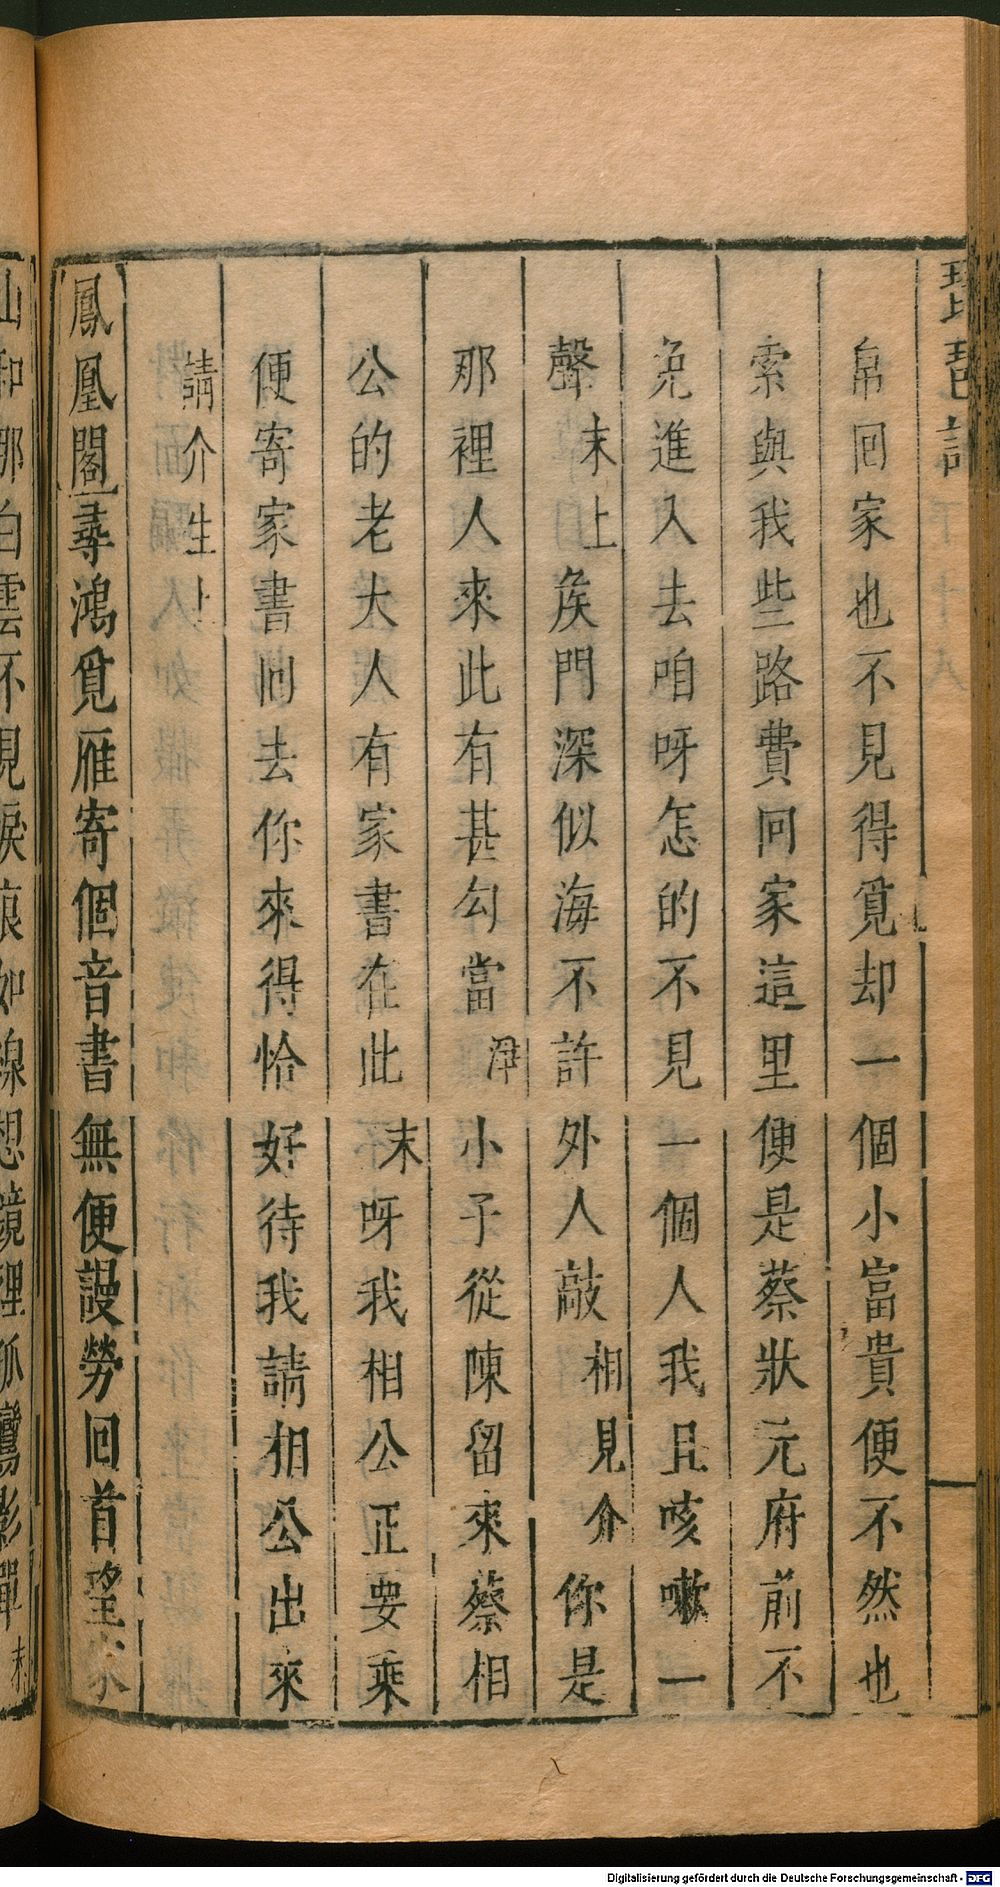 琵琶記 下 十八
帛回家也不見得覓却一個小富貴便不然也
索與我些路費回家這里便是蔡狀元府前不
免進入去咱呀怎的不見一個人我且咳嗽一
聲末上矦門深似海不許外人敲相見介你是
那裡人來此有甚勾當淨小子從陳留來蔡相
公的老大人有家書在此末呀我相公正要乘
便寄家書回去你來得恰好待我請相公出來
請介生上
鳳凰閣尋鴻覓雁寄個音書無便謾勞回首望家
山和那白雲不見淚痕如線想鏡裡孤鸞影單末
Digitalisierung gefördert durch die Deutsche Forschungsgemeinschaft - DFG